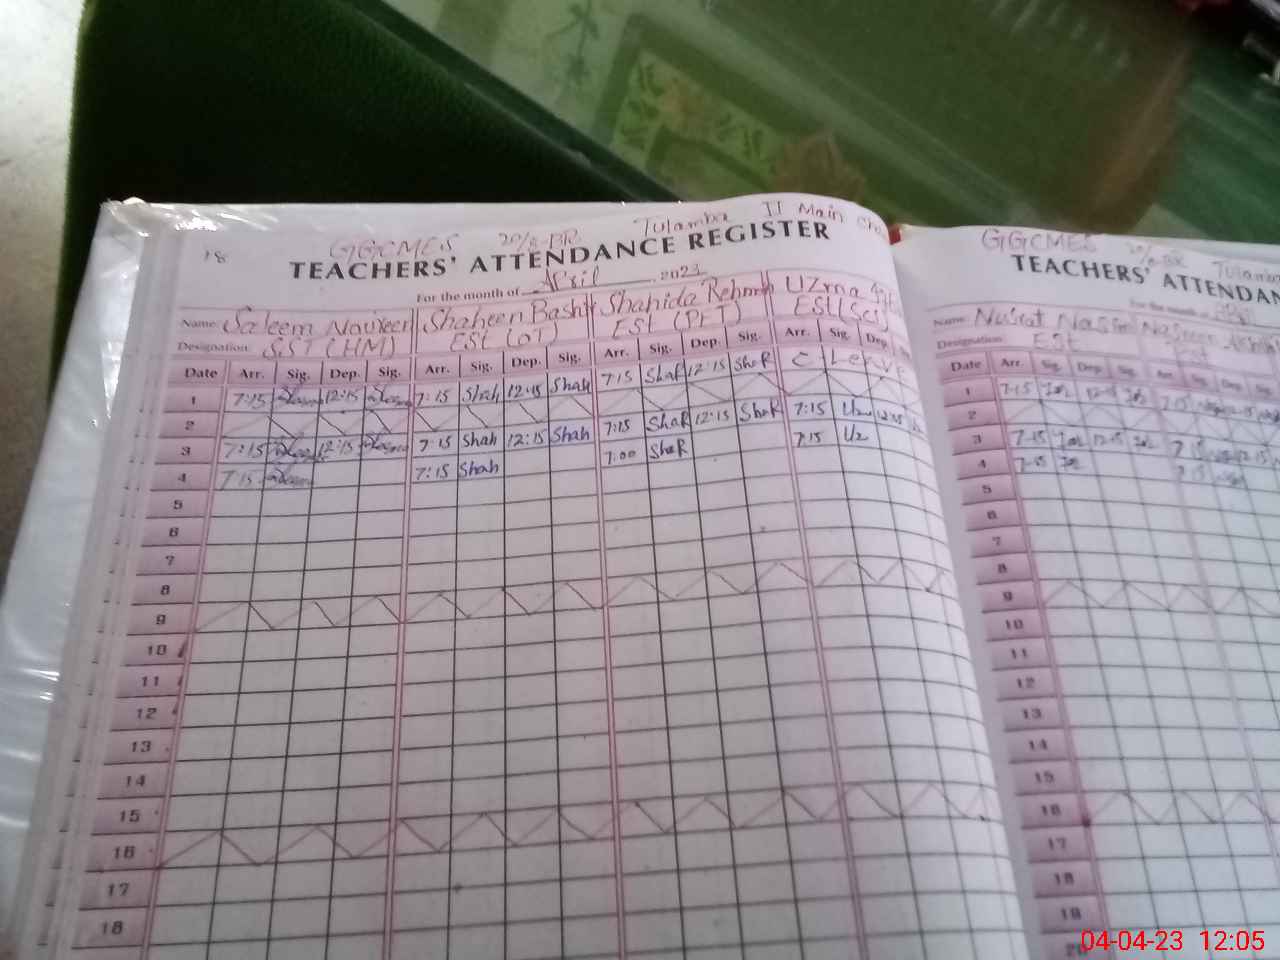 18 GGCMES 20/8-BR Tulamba II Main
TEACHERS' ATTENDANCE REGISTER
For the month of April 2023
Name: Saleem Navreen Shaheen Bashir Shahida Rehman Uzma
Designation: SST (HM) EST (OT) EST (PET) EST (Sci)
Date Arr. Sig. Dep. Sig. Arr. Sig. Dep. Sig. Arr. Sig. Dep. Sig. Arr. Sig. Dep.
1 7:15 12:15 7:15 Shah 12:15 Shah 7:15 ShaR 12:15 ShaR C Leave
2
3 7:15 12:15 7:15 Shah 12:15 Shah 7:15 ShaR 12:15 ShaR 7:15 Uz 12:15
4 7:15 7:15 Shah 7:00 ShaR 7:15 Uz
5
6
7
8
9
10
11
12
13
14
15
16
17
18
GGCMES 20/8-BR Tulamba
TEACHERS' ATTENDAN
For the month of April
Name: Nusrat Nasim Naseer
Designation: EST EST
Date Arr. Sig. Dep. Sig. Arr. Sig. Dep. Sig.
1 7:15 12:15 7:15 12:15
2
3 7:15 12:15 7:15 12:15
4 7:15 7:15
5
6
7
8
9
10
11
12
13
14
15
16
17
18
19
20
04-04-23 12:05